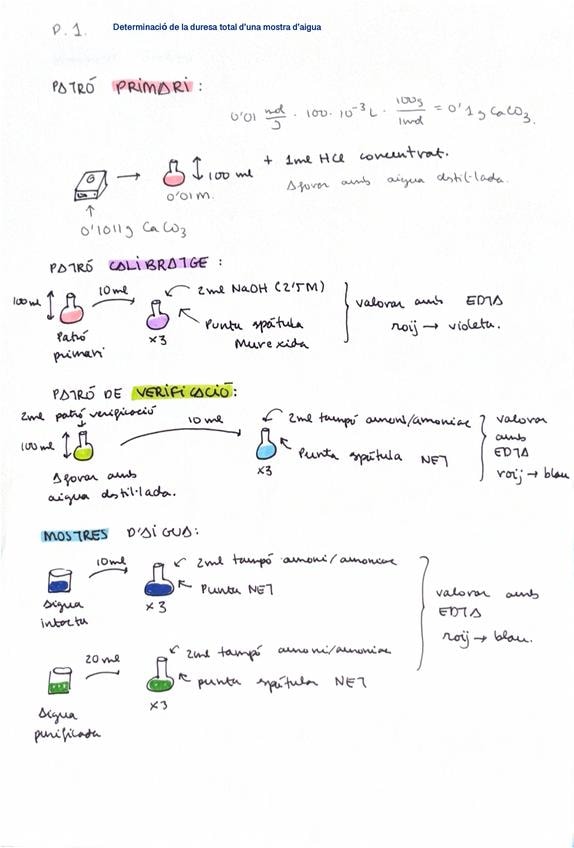 P.1. Determinació de la duresa total d'una mostra d'aigua
PATRÓ PRIMARI:
0'01 mol/J · 100·10⁻³L · 100g/1mol = 0'1 g CaCO₃.
100 ml + 1ml HCl concentrat.
0'01M. Aforar amb aigua destil·lada.
0'1011g CaCO₃
PATRÓ CALIBRATGE:
100 ml 10 ml 2ml NaOH (2'5M)
Patró primari x3 Punta spàtula Murexida
valorar amb EDTA
roig → violeta.
PATRÓ DE VERIFICACIÓ:
2ml patró verificació 10 ml 2ml tampó amoni/amoniac
100 ml Punta spàtula NET
x3
Aforar amb
aigua destil·lada.
valorar
amb
EDTA
roig → blau
MOSTRES D'AIGUA:
10ml 2ml tampó amoni/amoniac
Punta NET
Aigua x3
intacta
20 ml 2ml tampó amoni/amoniac
punta spàtula NET
x3
Aigua
purificada
valorar amb
EDTA
roig → blau.